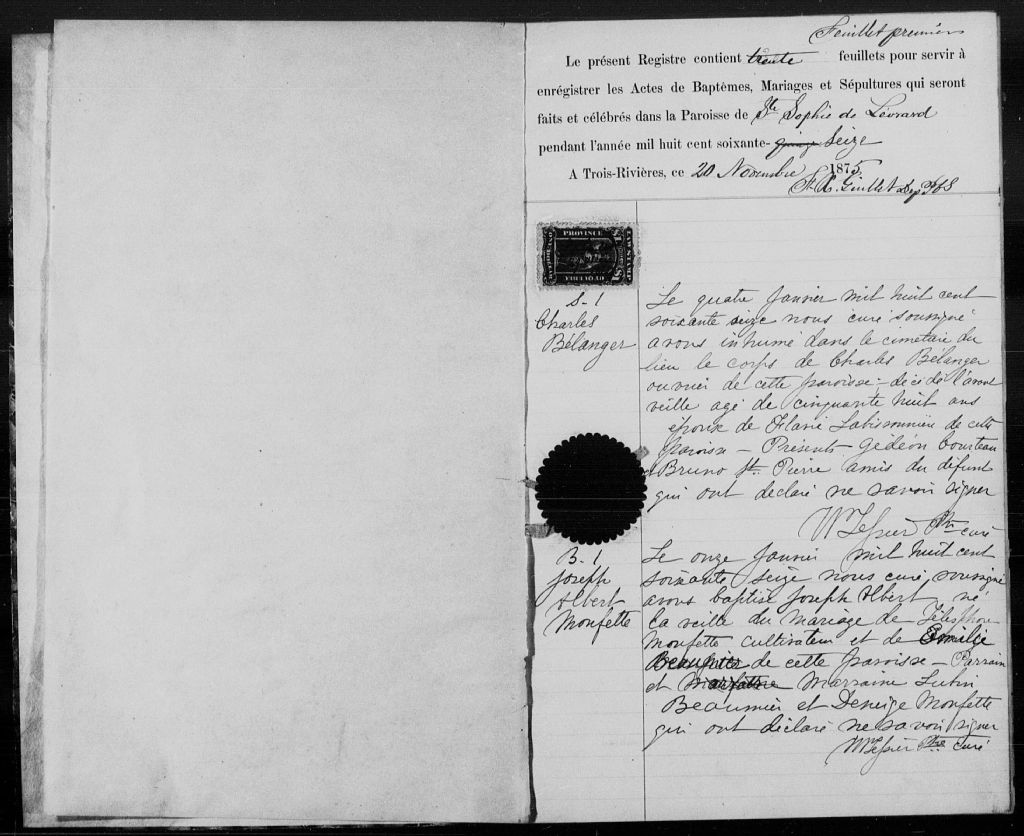 Feuillet premier
Le présent Registre contient trente feuillets pour servir à
enrégistrer les Actes de Baptêmes, Mariages et Sépultures qui seront
faits et célébrés dans la Paroisse de Ste Sophie de Lévrard
pendant l'année mil huit cent soixante-quinze Seize
A Trois-Rivières, ce 20 Novembre 1875
F. X. Guillet Dep
PROVINCE
S-1
Charles
Bélanger
Le quatre Janvier mil huit cent
soixante seize nous curé soussigné
avons inhumé dans le cimetière du
lieu le corps de Charles Bélanger
ouvrier de cette paroisse - décédé l'avant
veille agé de cinquante huit ans
époux de Flavie Labissonnière de cette
paroisse - Présents Gédéon Courteau
et Bruno St. Pierre amis du défunt
qui ont declaré ne savoir signer
Ptre curé
B. 1
Joseph
Albert
Monfette
Le onze Janvier mil huit cent
soixante seize nous curé soussigné
avons baptisé Joseph Albert né
la veille du mariage de Télesphore
Monfette cultivateur et de Emilie
Beaumier de cette paroisse - Parrain
et marraine Marraine
Beaumier et Deneige Monfette
qui ont déclaré ne savoir signer
Ptre curé